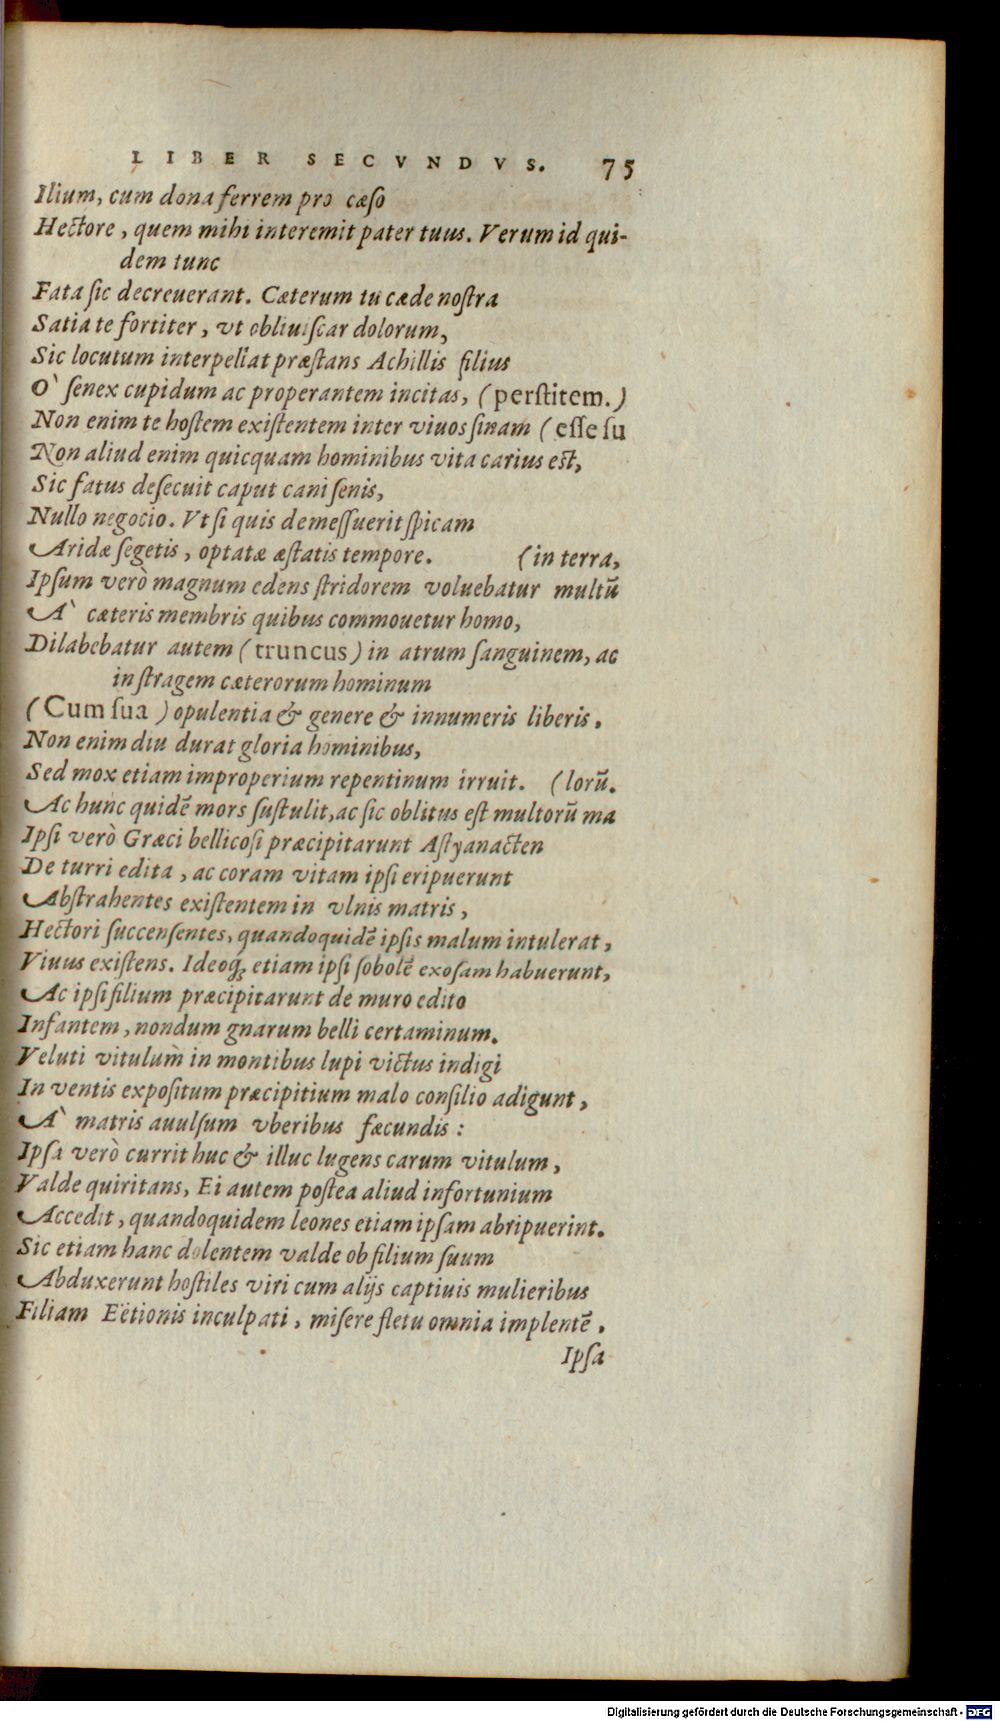 LIBER SECVNDVS. 75
Ilium, cum dona ferrem pro cæso
Hectore, quem mihi interemit pater tuus. Verum id qui-
dem tunc
Fata sic decreuerant. Cæterum tu cæde nostra
Satia te fortiter, vt obliuiscar dolorum,
Sic locutum interpellat præstans Achillis filius
O` senex cupidum ac properantem incitas, (perstitem.)
Non enim te hostem existentem inter viuos sinam (esse su
Non aliud enim quicquam hominibus vita carius est,
Sic fatus desecuit caput cani senis,
Nullo negocio. Vt si quis demessuerit spicam
Aridæ segetis, optatæ æstatis tempore. (in terra,
Ipsum verò magnum edens stridorem voluebatur multū
A` cæteris membris quibus commouetur homo,
Dilabebatur autem (truncus) in atrum sanguinem, ac
in stragem cæterorum hominum
(Cum sua) opulentia & genere & innumeris liberis.
Non enim diu durat gloria hominibus,
Sed mox etiam improperium repentinum irruit. (lorū.
Ac hunc quidē mors sustulit, ac sic oblitus est multorū ma
Ipsi verò Græci bellicosi præcipitarunt Astyanacten
De turri edita, ac coram vitam ipsi eripuerunt
Abstrahentes existentem in vlnis matris,
Hectori succensentes, quandoquidē ipsis malum intulerat,
Viuus existens. Ideoq́; etiam ipsi sobolē exosam habuerunt,
Ac ipsi filium præcipitarunt de muro edito
Infantem, nondum gnarum belli certaminum.
Veluti vitulum in montibus lupi victus indigi
In ventis expositum præcipitium malo consilio adigunt,
A` matris auulsum vberibus fæcundis:
Ipsa verò currit huc & illuc lugens carum vitulum,
Valde quiritans, Ei autem postea aliud infortunium
Accedit, quandoquidem leones etiam ipsam abripuerint.
Sic etiam hanc dolentem valde ob filium suum
Abduxerunt hostiles viri cum alijs captiuis mulieribus
Filiam Eëtionis inculpati, misere fletu omnia implentē.
Ipsa
Digitalisierung gefördert durch die Deutsche Forschungsgemeinschaft - DFG